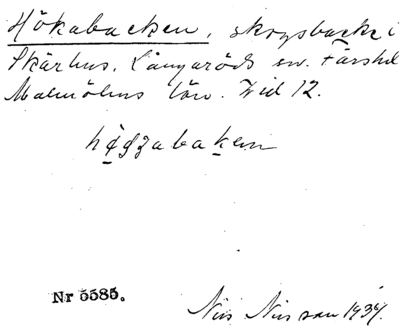 Hökabacken, skogsbacke i
Skarhus, Långaröds sn. Färs hd
Malmöhus län. Zid 12.
hǫgzabaken
Nr 5585.
Nils Nilsson 1934.